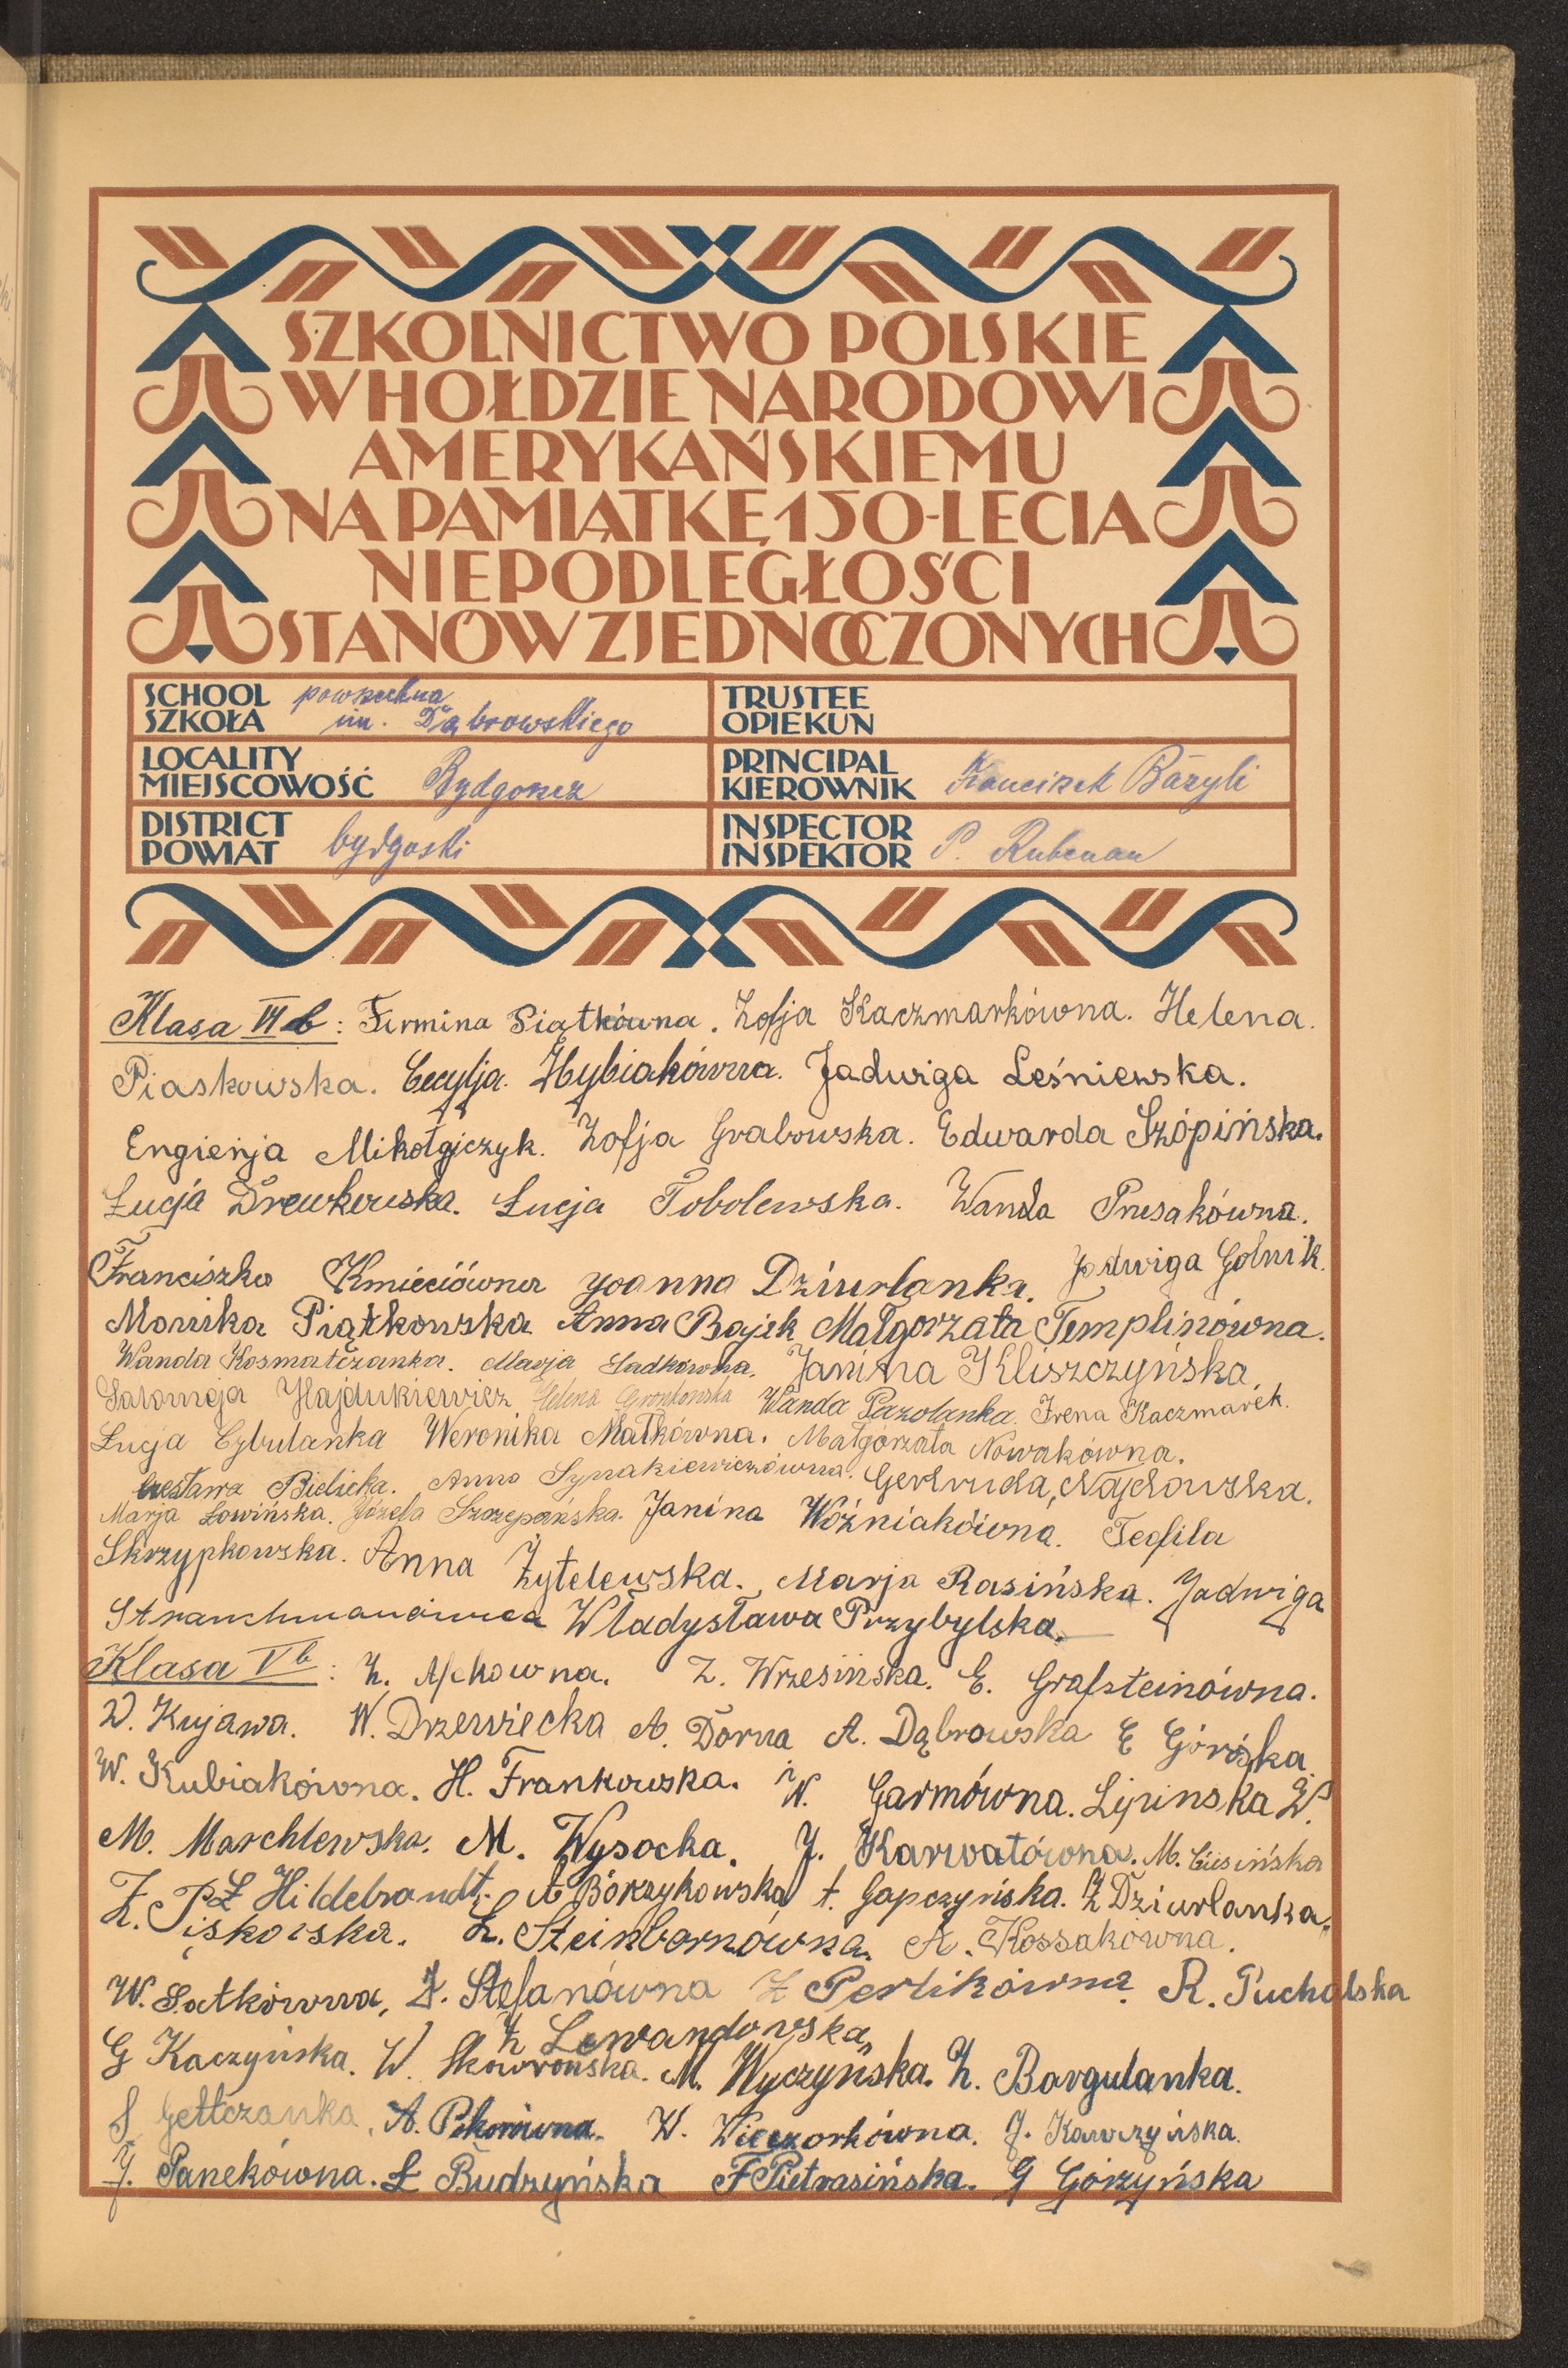 SZKOLNICTWO POLSKIE
W HOŁDZIE NARODOWI
AMERYKAŃSKIEMU
NA PAMIĄTKĘ 150-LECIA
NIEPODLEGŁOŚCI
STANÓW ZJEDNOCZONYCH
SCHOOL SZKOŁA powszechna im. Dąbrowskiego
TRUSTEE OPIEKUN
LOCALITY MIEJSCOWOŚĆ Bydgoszcz
PRINCIPAL KIEROWNIK Franciszek Bażyli
DISTRICT POWIAT bydgoski
INSPECTOR INSPEKTOR P. Rubenau
Klasa VI b: Firmina Piątkówna. Zofja Kaczmarkówna. Helena.
Piaskowska. Cecylja. Hybiakówna. Jadwiga Leśniewska.
Engienja Mikołajczyk. Zofja Grabowska. Edwarda Szópińska.
Łucja Drewkowska. Łucja Tobolewska. Wanda Prusakówna.
Franciszka Kmieciówna Joanna Dziurlanka. Jadwiga Golnik.
Monika Piątkowska Anna Bajek Małgorzata Templinówna.
Wanda Kosmatczanka. Marja Sadkówna. Janina Kliszczyńska
Salomeja Hajdukiewicz Helena Gronkowska Wanda Pazolanka. Irena Kaczmarek.
Łucja Cybulanka Weronika Małkówna. Małgorzata Nowakówna.
Czesława Bielicka. Anna Synakiewiczówna. Gertruda Najdowska.
Marja Łowińska. Józefa Szczepańska. Janina Woźniakówna. Teofila
Skrzypkowska. Anna Żytelewska. Marja Rasińska. Jadwiga
Strauchmanówna Władysława Przybylska.
Klasa V b: Z. Z. Wrzesińska. E. Grafsteinówna.
W. Kujawa. W. Drzewiecka A. Dorna A. Dąbrowska E Górska.
W. Kubiakówna. H. Frankowska. W. Garmówna. Lipinska W.
M. Marchlewska. M. Wysocka. J. Karwatówna. M. Ciesińska
Ł Hildebrandt. A Borzykowska A. Gapczyńska. Z Dziurlanka.
Z. Piskorska. Ł. Steinbornówna. A. Kossakówna.
W. Satkówna, Z. Stefanówna Z Pertikówna R. Puchalska
Z Lewandowska,
G Kaczyńska. W. Skowrońska. M. Wyczyńska. Z. Bargulanka.
S Gettczanka, A. Pikorówna. W. Wieczorkówna. J. Kawczyńska.
J. Panekówna. Ł Budzyńska F Pietrasińska. G Górzyńska